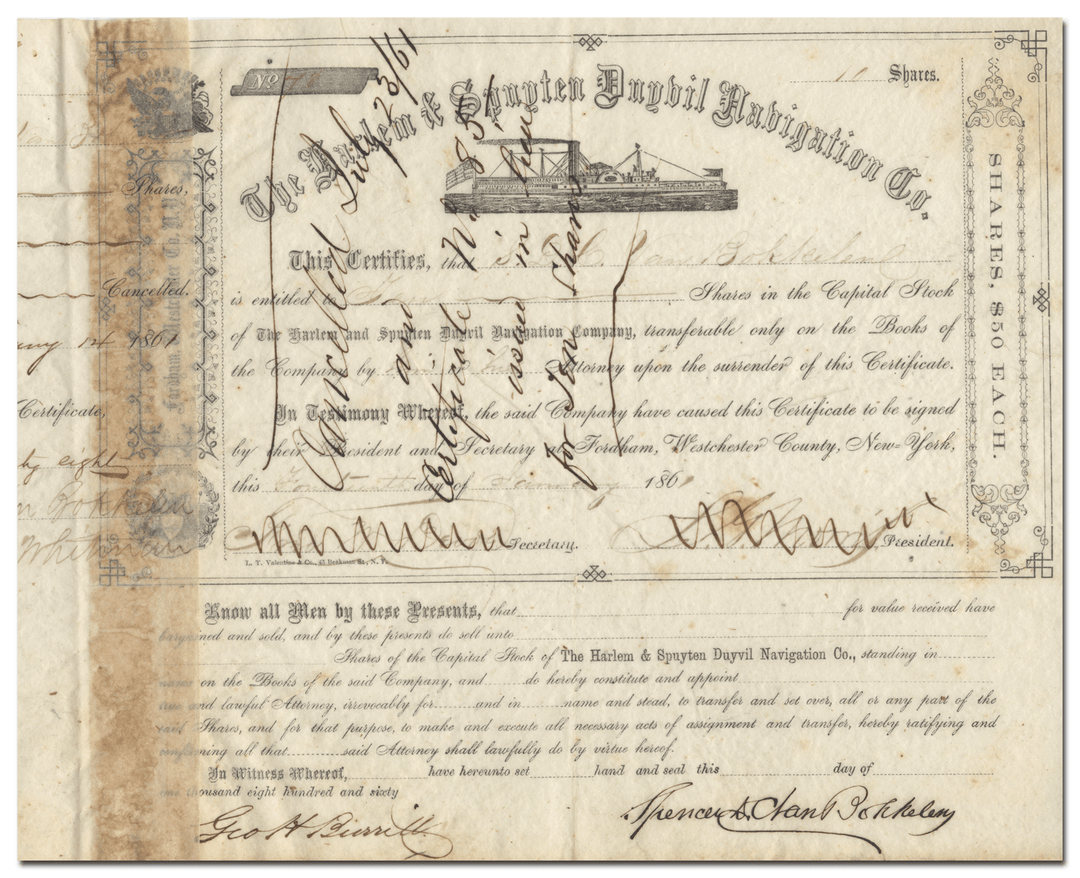 No 78
Shares.
The Harlem & Spuyten Duyvil Navigation Co.
This Certifies, that S. D. C. Van Bokkelen
is entitled to Shares in the Capital Stock
of The Harlem and Spuyten Duyvil Navigation Company, transferable only on the Books of
the Company by Attorney upon the surrender of this Certificate.
In Testimony Whereof, the said Company have caused this Certificate to be signed
by their President and Secretary at Fordham, Westchester County, New-York,
this Fourteenth day of January 1861
Secretary.
President.
L. T. Valentine & Co., 45 Beekman St., N. Y.
SHARES, $50 EACH.
Cancelled July 23/61
and
Certificate No 85
issued in lieu
for Ten Shares
Shares,
Cancelled.
14 1861
Certificate,
eight
Bokkelen
Whitman
Know all Men by these Presents, that for value received have
bargained and sold, and by these presents do sell unto
Shares of the Capital Stock of The Harlem & Spuyten Duyvil Navigation Co., standing in
name on the Books of the said Company, and do hereby constitute and appoint
true and lawful Attorney, irrevocably for and in name and stead, to transfer and set over, all or any part of the
said Shares, and for that purpose, to make and execute all necessary acts of assignment and transfer, hereby ratifying and
confirming all that said Attorney shall lawfully do by virtue hereof.
In Witness Whereof, have hereunto set hand and seal this day of
one thousand eight hundred and sixty
Geo H Burritt
Spencer D. C. Van Bokkelen